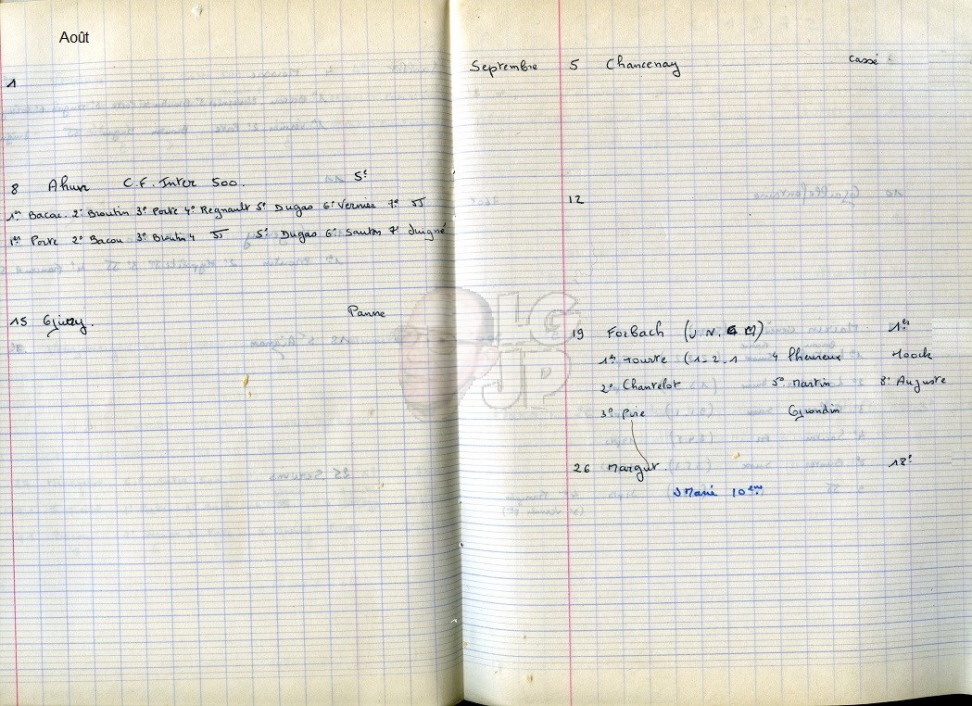 Août
1
8 Ahun C.F. Inter 500. 5e
1er Bacou. 2e Broutin 3e Porte 4e Regnault 5e Dugas 6e Vernier 7e JJ
1er Porte 2e Bacou 3e Broutin 4 JJ 5e Dugas 6e Sauton 7e Juigné
15 Panne
Septembre 5 Chancenay cassé
12
19 Forbach (J N. M) 1er
1er Tourte (1-2-1 4 Lheureux Hoock
2e Chantelot 5e Martin 8e Auguste
3e Pirie Grondin
26 Margut 12e
J Marie 10eme
LGC
JP